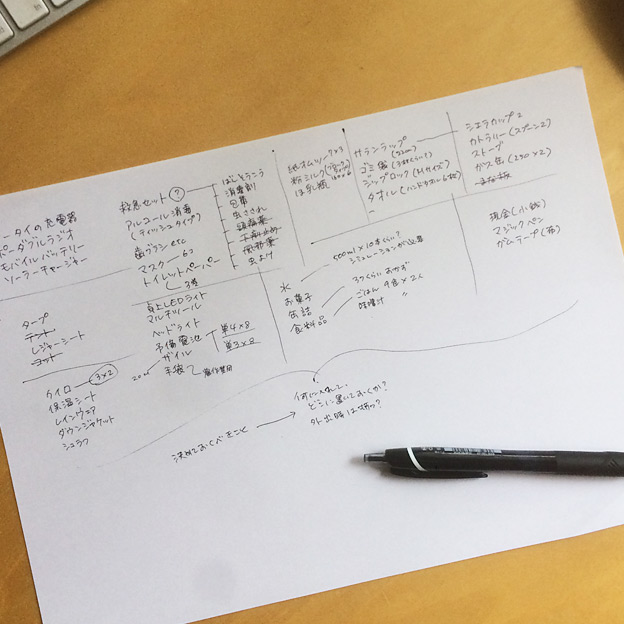 ータイの充電器
ポータブルラジオ
モバイルバッテリー
ソーラーチャージャー
救急セット ?
アルコール消毒
(ティッシュタイプ)
歯ブラシ etc
マスク 60
トイレットペーパー
ばんそうコウ
消毒剤
包帯
虫さされ
鎮痛薬
下痢止め
風邪薬
虫よけ
紙オムツ
粉ミルク
ほ乳瓶
サランラップ
ゴミ袋
ジップロック (Mサイズ)
タオル (ハンドタオル6枚)
シエラカップ 2
カトラリー (スプーン2)
ストーブ
ガス缶 (250×2)
まな板
タープ
テント
レジャーシート
ヨット
卓上LEDライト
マルチツール
ヘッドライト
予備電池
単4×8
単3×8
ザイル
20m
手袋
水
500ml×10本くらい?
シミュレーションが必要
お菓子
缶詰
3つくらい おかず
食料品
ごはん 9食×2人
味噌汁 〃
現金 (小銭)
マジックペン
ガムテープ (布)
カイロ 3×2
保温シート
レインウェア
ダウンジャケット
シュラフ
決めておくべきこと
何に入れて、
どこに置いておくか?
外出時は持つ?